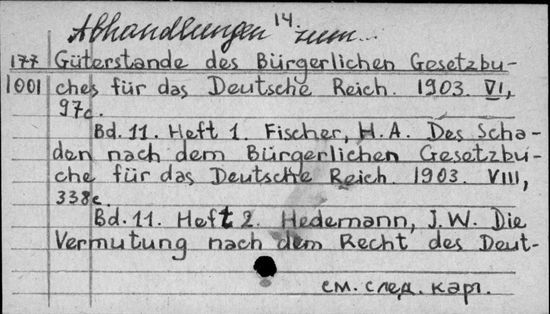 Abhandlungen 14. zum...
177 Güterstande des Bürgerlichen Gesetzbu-
1001 ches für das Deutsche Reich. 1903. VI,
97c.
Bd. 11. Heft 1. Fischer, H. A. Des Scha-
den nach dem Bürgerlichen Gesetzbu-
che für das Deutsche Reich. 1903. VIII,
338c.
Bd. 11. Heft 2. Hedemann, J. W. Die
Vermutung nach dem Recht des Deut-
см. след. карт.